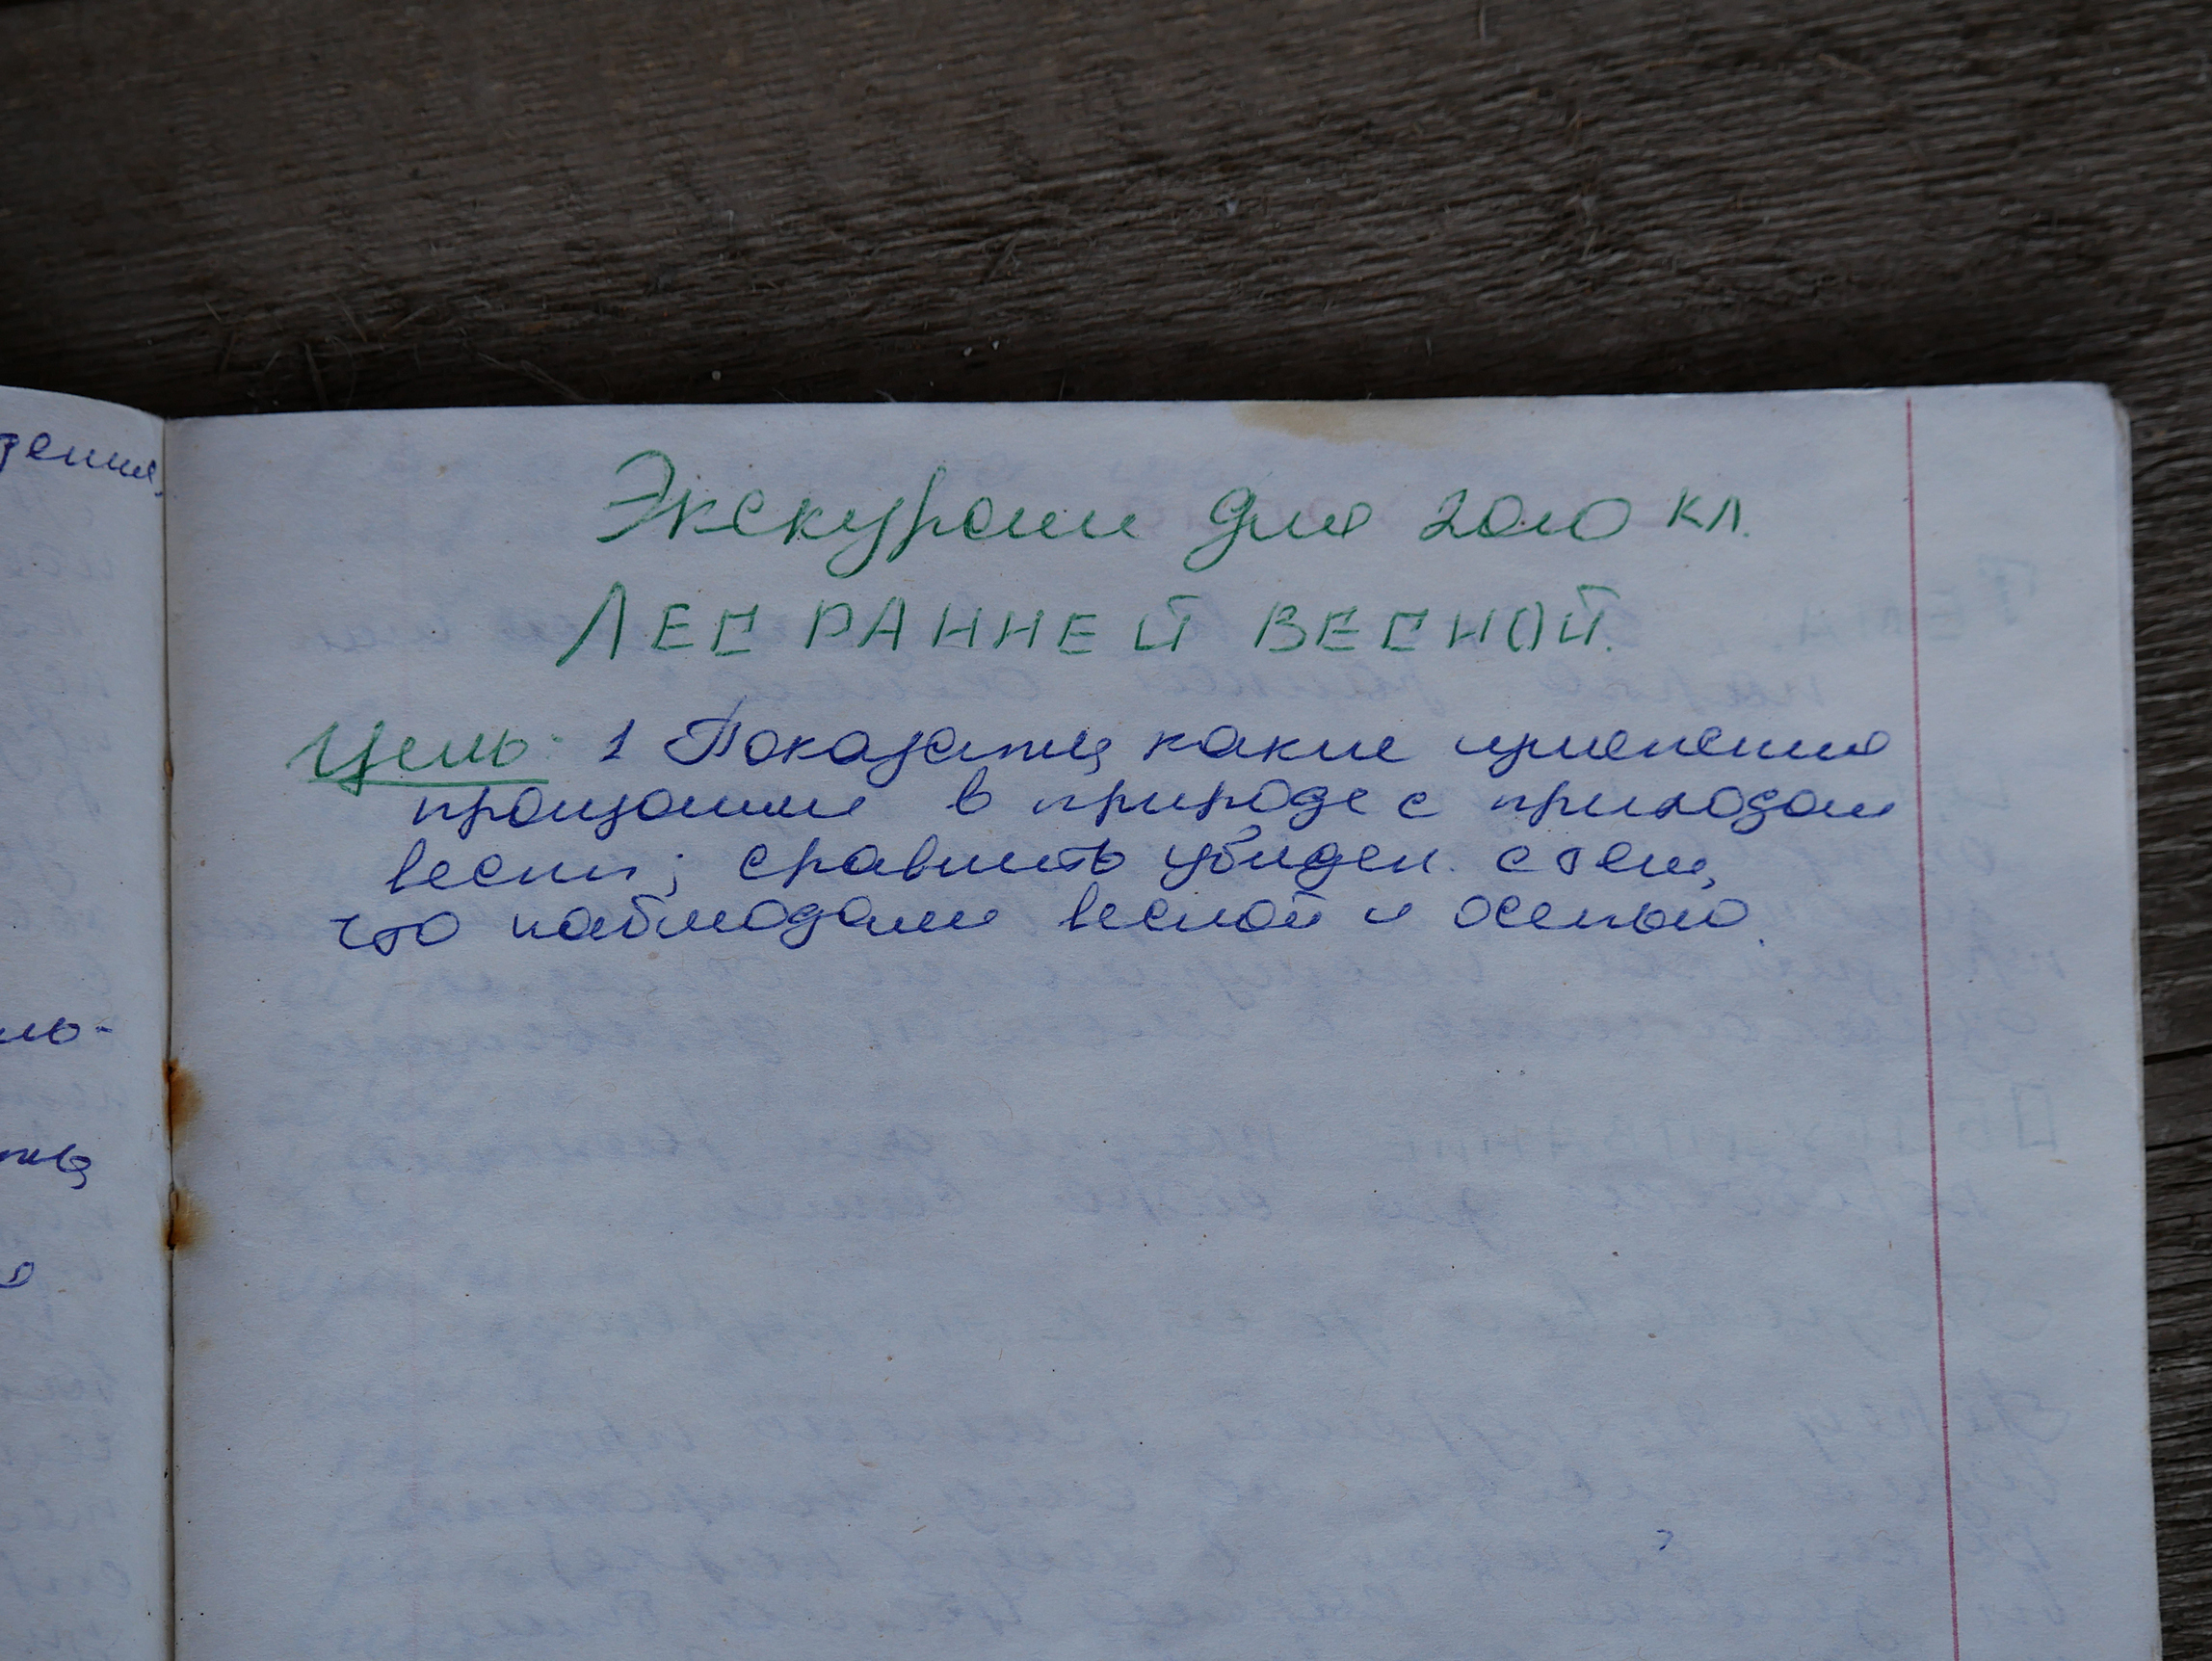 дения,
Экскурсии для 2ого кл.
ЛЕС РАННЕЙ ВЕСНОЙ.
Цель: 1 Показать, какие изменения
произошли в природе с приходом
весны; сравнить увиден. с тем,
что наблюдали весной и осенью.
ль-
ть